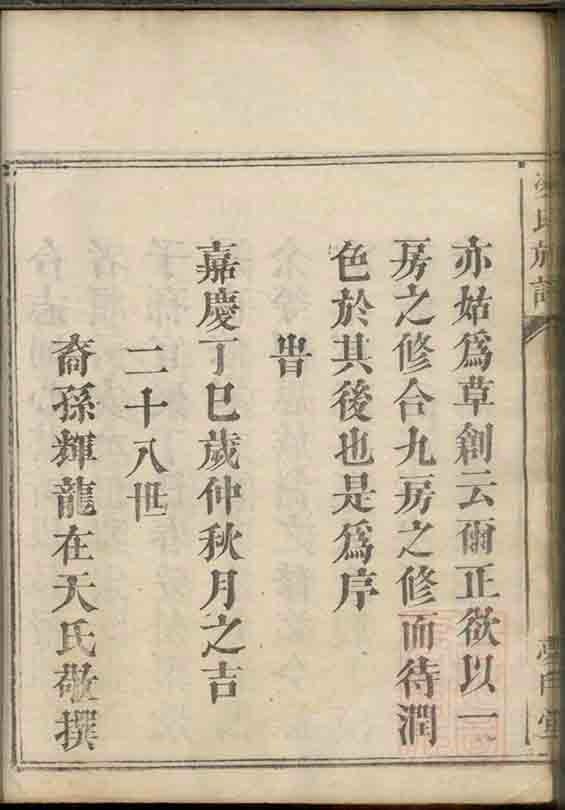 亦姑爲草創云爾正欲以一
房之修合九房之修而待潤
色於其後也是爲序
旹
嘉慶丁巳歲仲秋月之吉
二十八世
裔孫輝龍在天氏敬撰